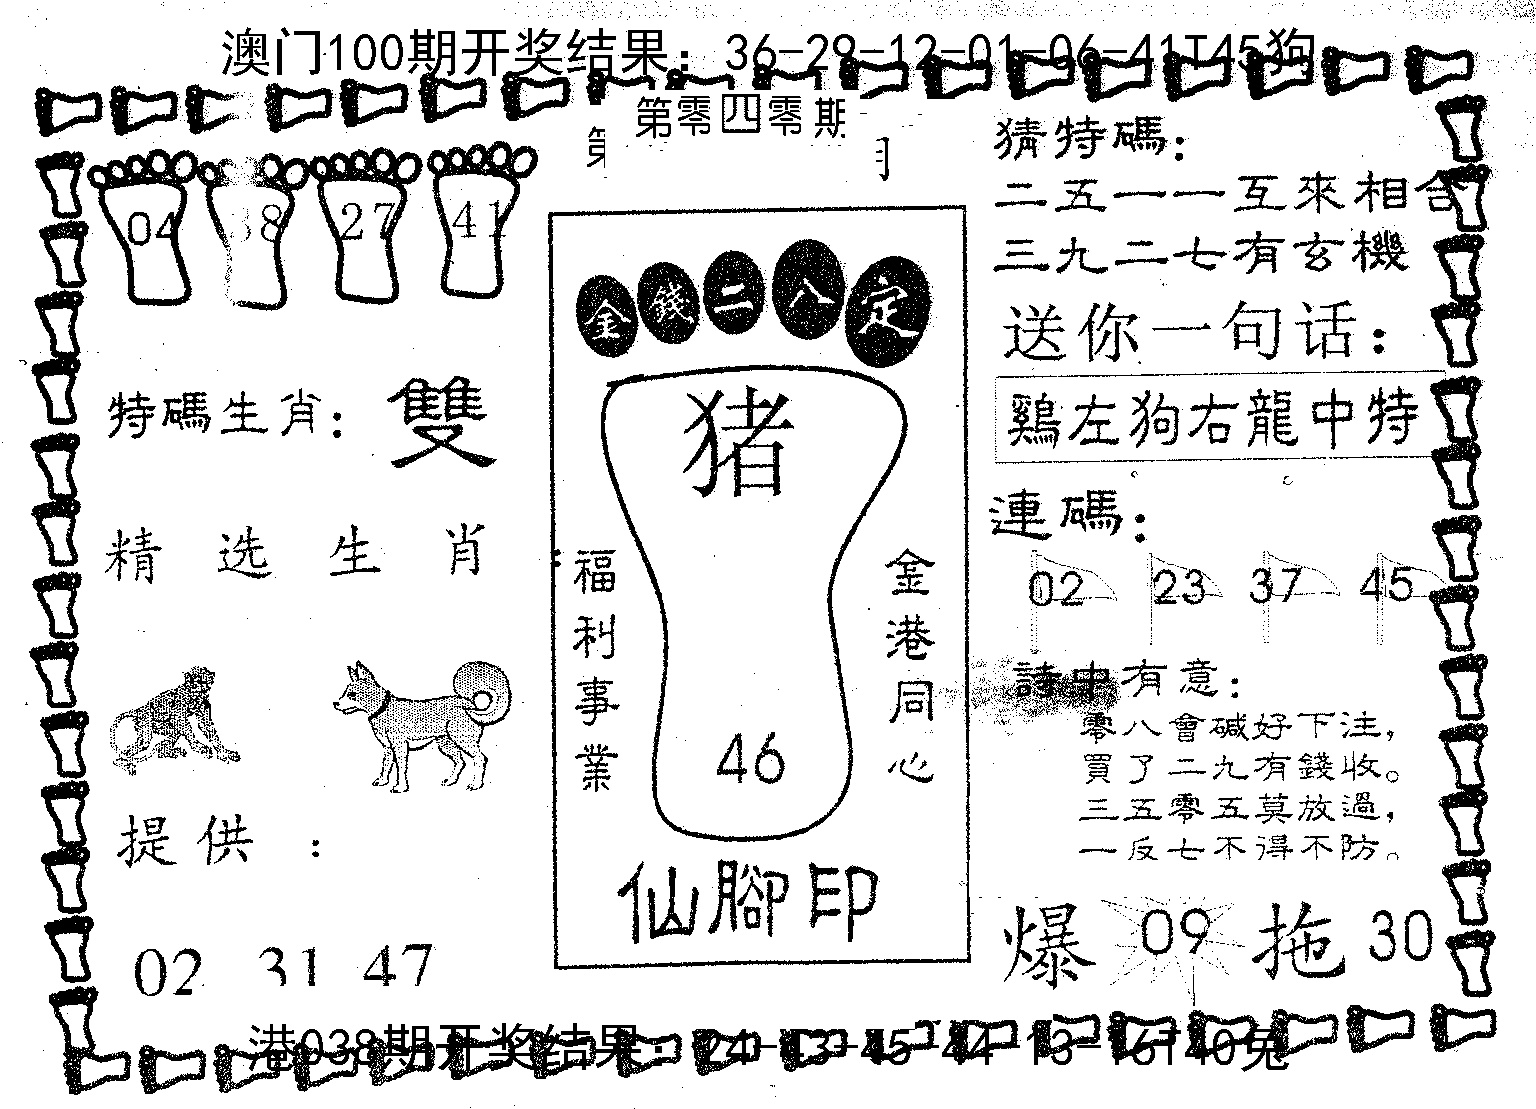 澳门100期开奖结果：36-29-12-01-06-41T45狗
第零四零期
04 38 27 41
特碼生肖：雙
精选生肖：
提供：
02 31 47
金錢二八定
猪
46
福利事業
金港同心
仙腳印
猜特碼：
二五一一互來相合
三九二七有玄機
送你一句话：
鷄左狗右龍中特
連碼：
02 23 37 45
詩中有意：
零八會碱好下注，
買了二九有錢收。
三五零五莫放過，
一反七不得不防。
爆 09 拖 30
港038期开奖结果：24-13-45-44-13-16T40兔